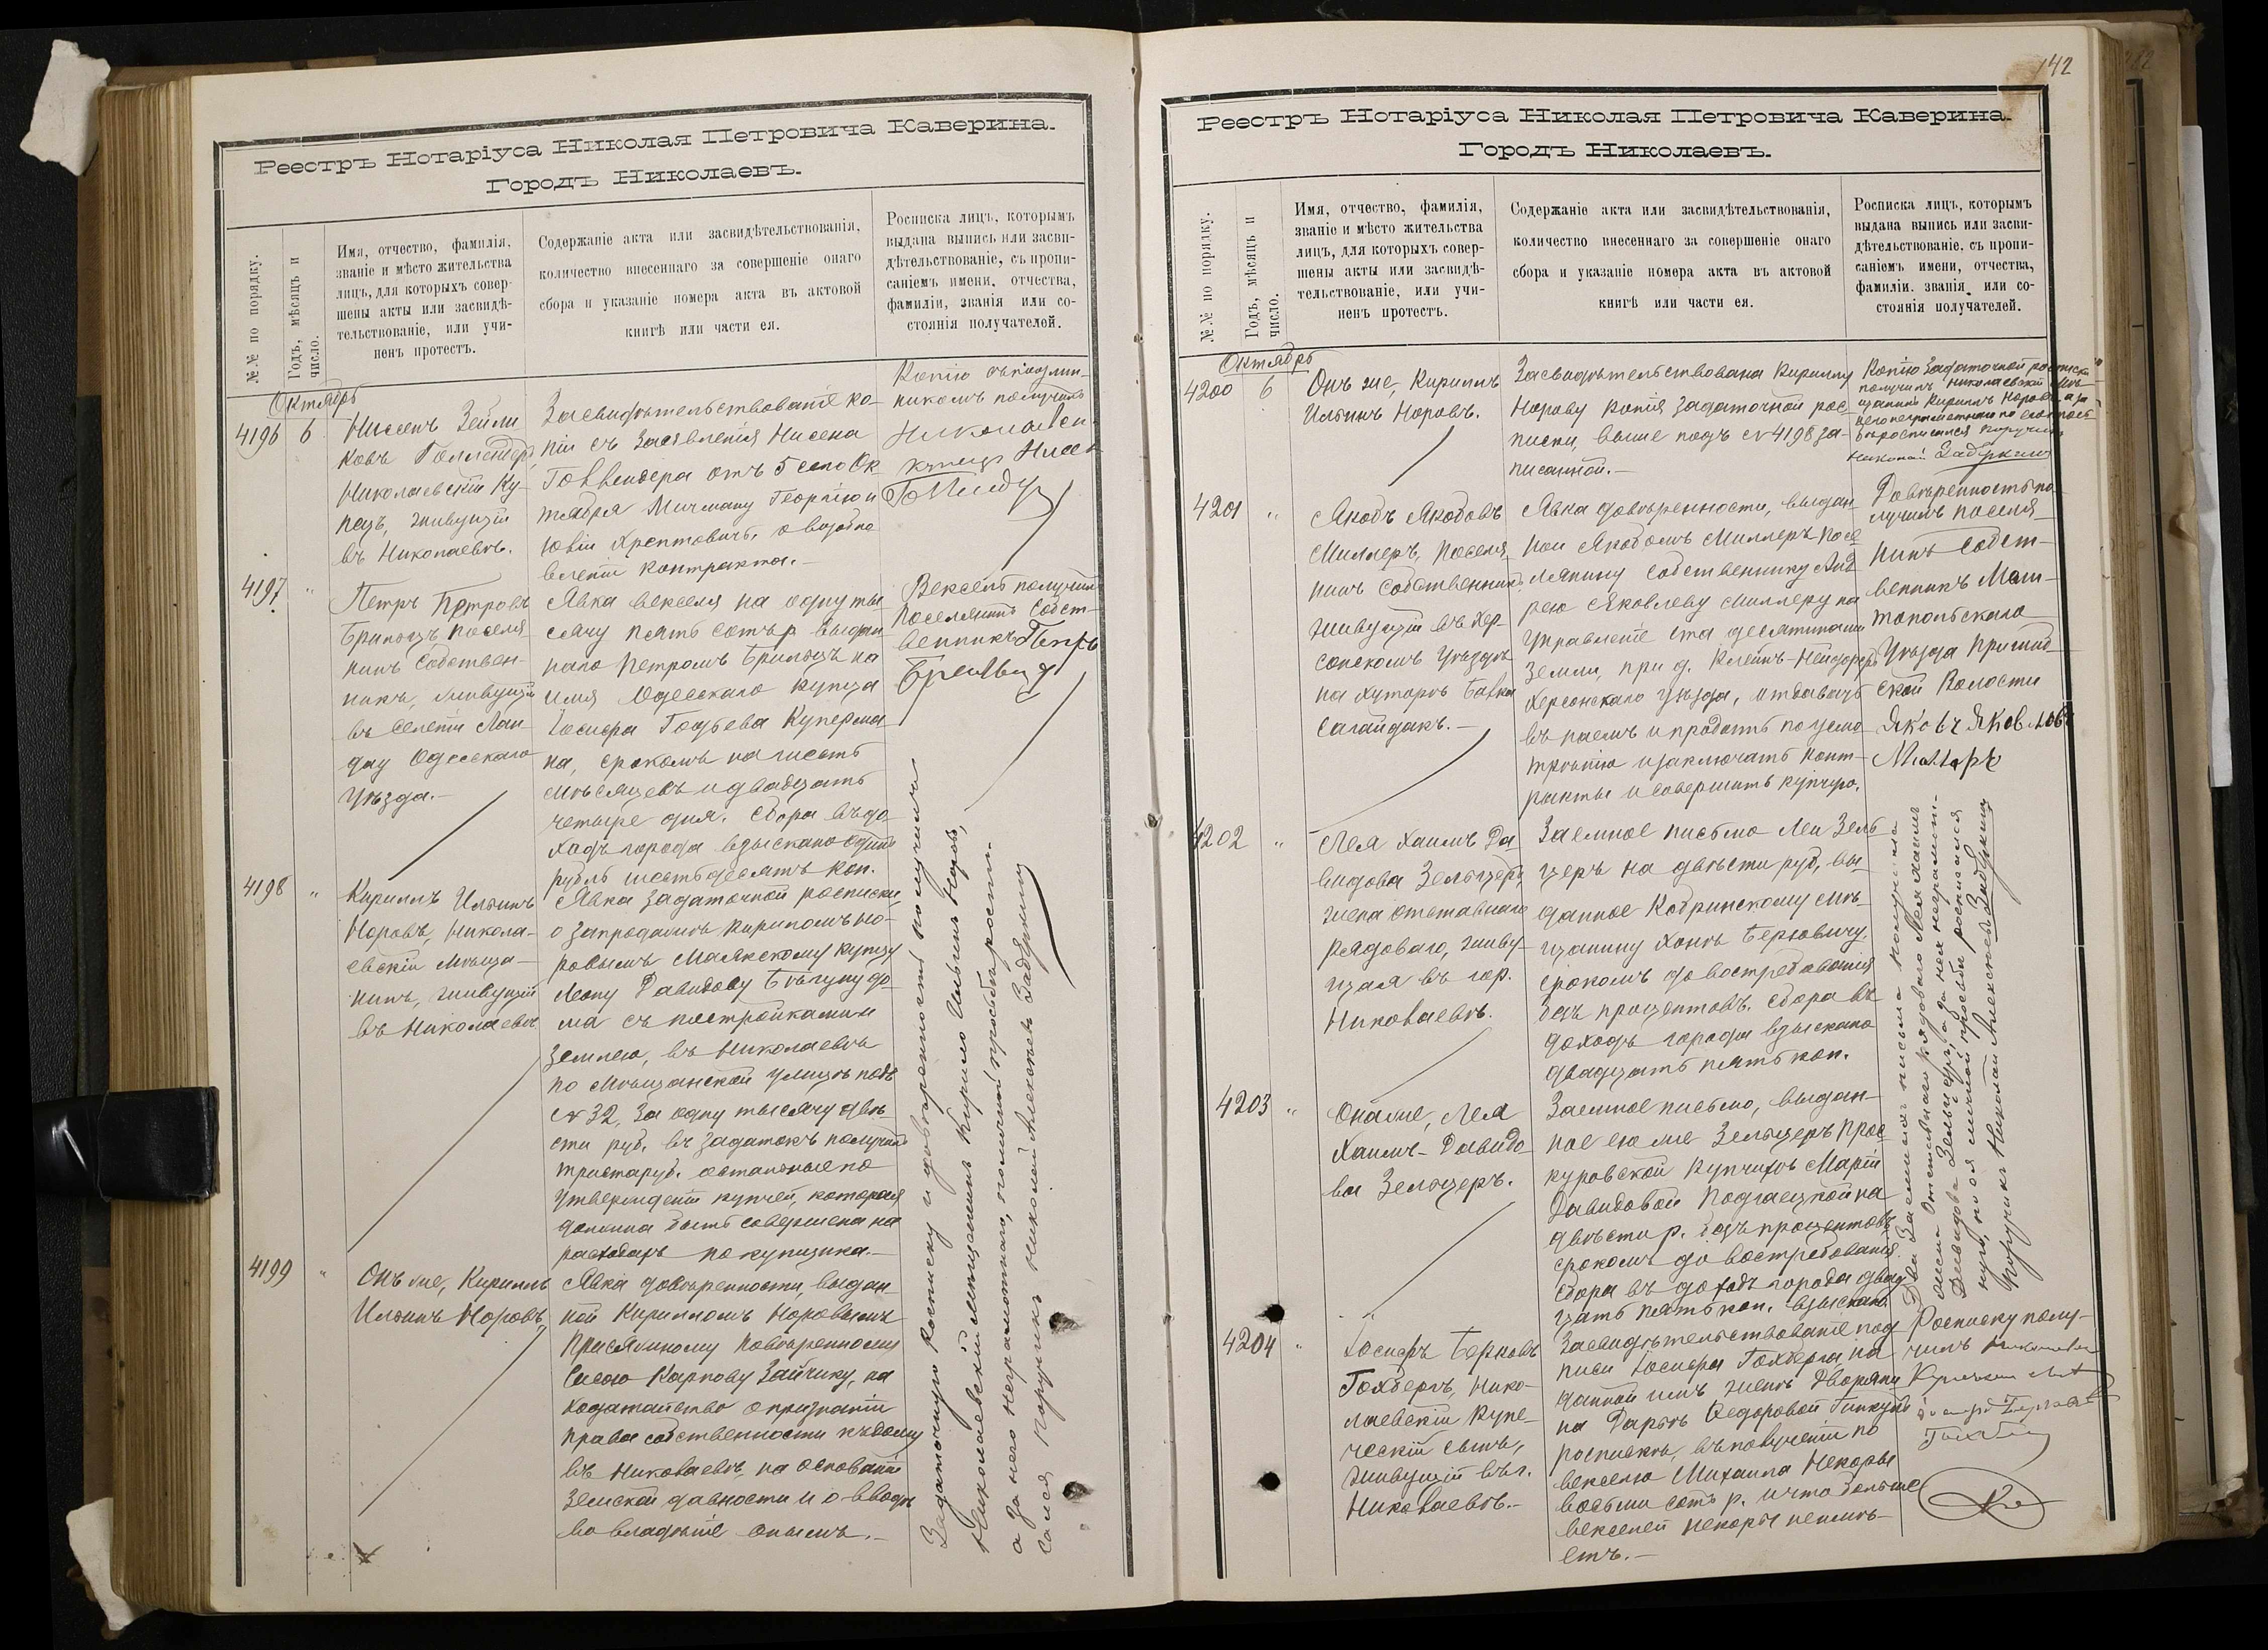 Реестръ Нотаріуса Николая Петровича Каверина.
Городъ Николаевъ.
№№ по порядку.
Годъ, мѣсяцъ и
число.
Имя, отчество, фамилія,
званіе и мѣсто жительства
лицъ, для которыхъ совер-
шены акты или засвидѣ-
тельствованіе, или учи-
ненъ протестъ.
Содержаніе акта или засвидѣтельствованія,
количество внесеннаго за совершеніе онаго
сбора и указаніе номера акта въ актовой
книгѣ или части ея.
Росписка лицъ, которымъ
выдана выпись или засви-
дѣтельствованіе, съ пропи-
саніемъ имени, отчества,
фамиліи, званія или со-
стоянія получателей.
Октябрь
4196
6
Ниссенъ Зейли
ковъ
Николаевскій Ку-
пецъ, живущій
въ Николаевѣ.
Засвидѣтельствованіе ко-
піи съ Заявленія Нисена
отъ 5 сего Ок
тября Мичману Георгію и
о возобно
вленіи контракта.-
Копію съ подлин-
никомъ получилъ
4197
"
Петръ Петровъ
Брильцъ поселя-
нинъ собствен-
никъ, живущій
въ селеніи Лан-
дау Одесскаго
Уѣзда.-
Явка векселя на одну ты
сячу пять сотъ р выдан
наго Петромъ Брильцъ на
имя Одесскаго купца
Іосифа Купермa
на, срокомъ на шесть
мѣсяцевъ и двадцать
четыре дня. Сбора въ до
ходъ города взыскано одинъ
рубль шестьдесятъ коп.
Вексель получилъ
поселянинъ собст-
венникъ Петръ
4198
"
Кириллъ Ильинъ
Норовъ, Никола-
евскій Мѣща-
нинъ, живущій
въ Николаевѣ
Явка задаточной росписки,
о запродажѣ Кирилломъ Но-
ровымъ Маякскому купцу
Леону Давидову Бѣгуну до
ма съ постройками и
землею, въ Николаевѣ
по Мѣщанской улицѣ подъ
№ 32, за одну тысячу двѣ-
сти руб. въ задатокъ получилъ
триста руб. остальные по
утвержденіи купчей, которая
должна быть совершена на
расходахъ покупщика.-
4199
"
Онъ же, Кириллъ
Ильинъ Норовъ,
Явка довѣренности, выдан-
ной Кирилломъ Норовымъ
Присяжному повѣренному
Карпову Зайчику, на
ходатайство о признаніи
права собственности къ дому
въ Николаевѣ, на основаніи
Земской давности и о вводѣ
во владѣніе онымъ.-
Задаточную Росписку и довѣренность получилъ
Николаевскій мѣщанинъ Кирило Ильинъ Норовъ,
а за него неграмотнаго, по личной просьбѣ роспи-
сался Поручикъ Николай Алексѣевъ Забѣркинъ
142
Реестръ Нотаріуса Николая Петровича Каверина.
Городъ Николаевъ.
№№ по порядку.
Годъ, мѣсяцъ и
число.
Имя, отчество, фамилія,
званіе и мѣсто жительства
лицъ, для которыхъ совер-
шены акты или засвидѣ-
тельствованіе, или учи-
ненъ протестъ.
Содержаніе акта или засвидѣтельствованія,
количество внесеннаго за совершеніе онаго
сбора и указаніе номера акта въ актовой
книгѣ или части ея.
Росписка лицъ, которымъ
выдана выпись или засви-
дѣтельствованіе, съ пропи-
саніемъ имени, отчества,
фамиліи. званія, или со-
стоянія получателей.
Октябрь
4200
6
Онъ же, Кириллъ
Ильинъ Норовъ.
Засвидѣтельствована Кириллу
Норову копія задаточной рос-
писки, выше подъ № 4198 за-
писанной.-
Копію Задаточной росписки
получилъ Николаевскій Мѣ-
щанинъ Кириллъ Норовъ а за
него неграмотнаго по его прось-
бѣ росписался Поручикъ
Николай Забѣркинъ
4201
"
Якобъ Якобовъ
Миллеръ, Поселя
нинъ Собственникъ
живущій въ Хер-
сонскомъ Уѣздѣ
на хуторѣ
Сагайдакъ.-
Явка довѣренности, выдан
ной Якобомъ Миллеръ Посе
лянину собственнику Анд
рею Яковлеву Миллеру на
управленіе ста десятинами
земли, при д.
Херсонскаго уѣзда, отдавать
въ наемъ и продать по усмо
трѣнію и заключать конт-
ракты и совершить купчую.
Довѣренность по
лучилъ поселя
нинъ собст-
венникъ Мели-
топольскаго
Уѣзда Пришиб
ской Волости
Яковъ Яковлевъ
Миллеръ
4202
"
Лея Хаимъ Да
видова Зельцеръ,
жена отставнаго
рядоваго, живу-
щая въ гор.
Николаевѣ.
Заемное письмо Леи Зель
церъ на двѣсти руб, вы-
данное Кобринскому мѣ-
щанину Берковичу
срокомъ до востребованія
безъ процентовъ. Сбора въ
доходъ города взыскано
двадцать пять коп.
4203
"
Она же, Лея
Хаимъ-Давидо
ва Зельцеръ.
Заемное письмо, выдан-
ное ею же Зельцеръ Прос
куровской купчихѣ Маріи
Давидовой Подгаецкой на
двѣсти р. безъ процентовъ
срокомъ до востребованія.
Сбора въ доходъ города двад
цать пять коп. взыскано
Два Заемныя письма получила
жена Отставнаго рядоваго Лея Хаимъ
Давидова Зельцеръ, а за нея неграмот-
ную, по ея личной просьбѣ росписался
Поручикъ Николай Алексѣевъ Забѣркинъ
4204
"
Іосифъ Берковъ
Гохбергъ, Нико-
лаевскій Купе-
ческій сынъ,
живущій въ г.
Николаевѣ.-
Засвидѣтельствованіе под
писи Іосифа Гохберга, на
данной имъ женѣ Дворяни
на Дарьѣ Ѳедоровой
роспискѣ, въ полученіи по
векселю Михаила Некоры
восьми сотъ р. и что больше
векселей Некоры неимѣ-
етъ.-
Росписку полу-
чилъ Николаевскій